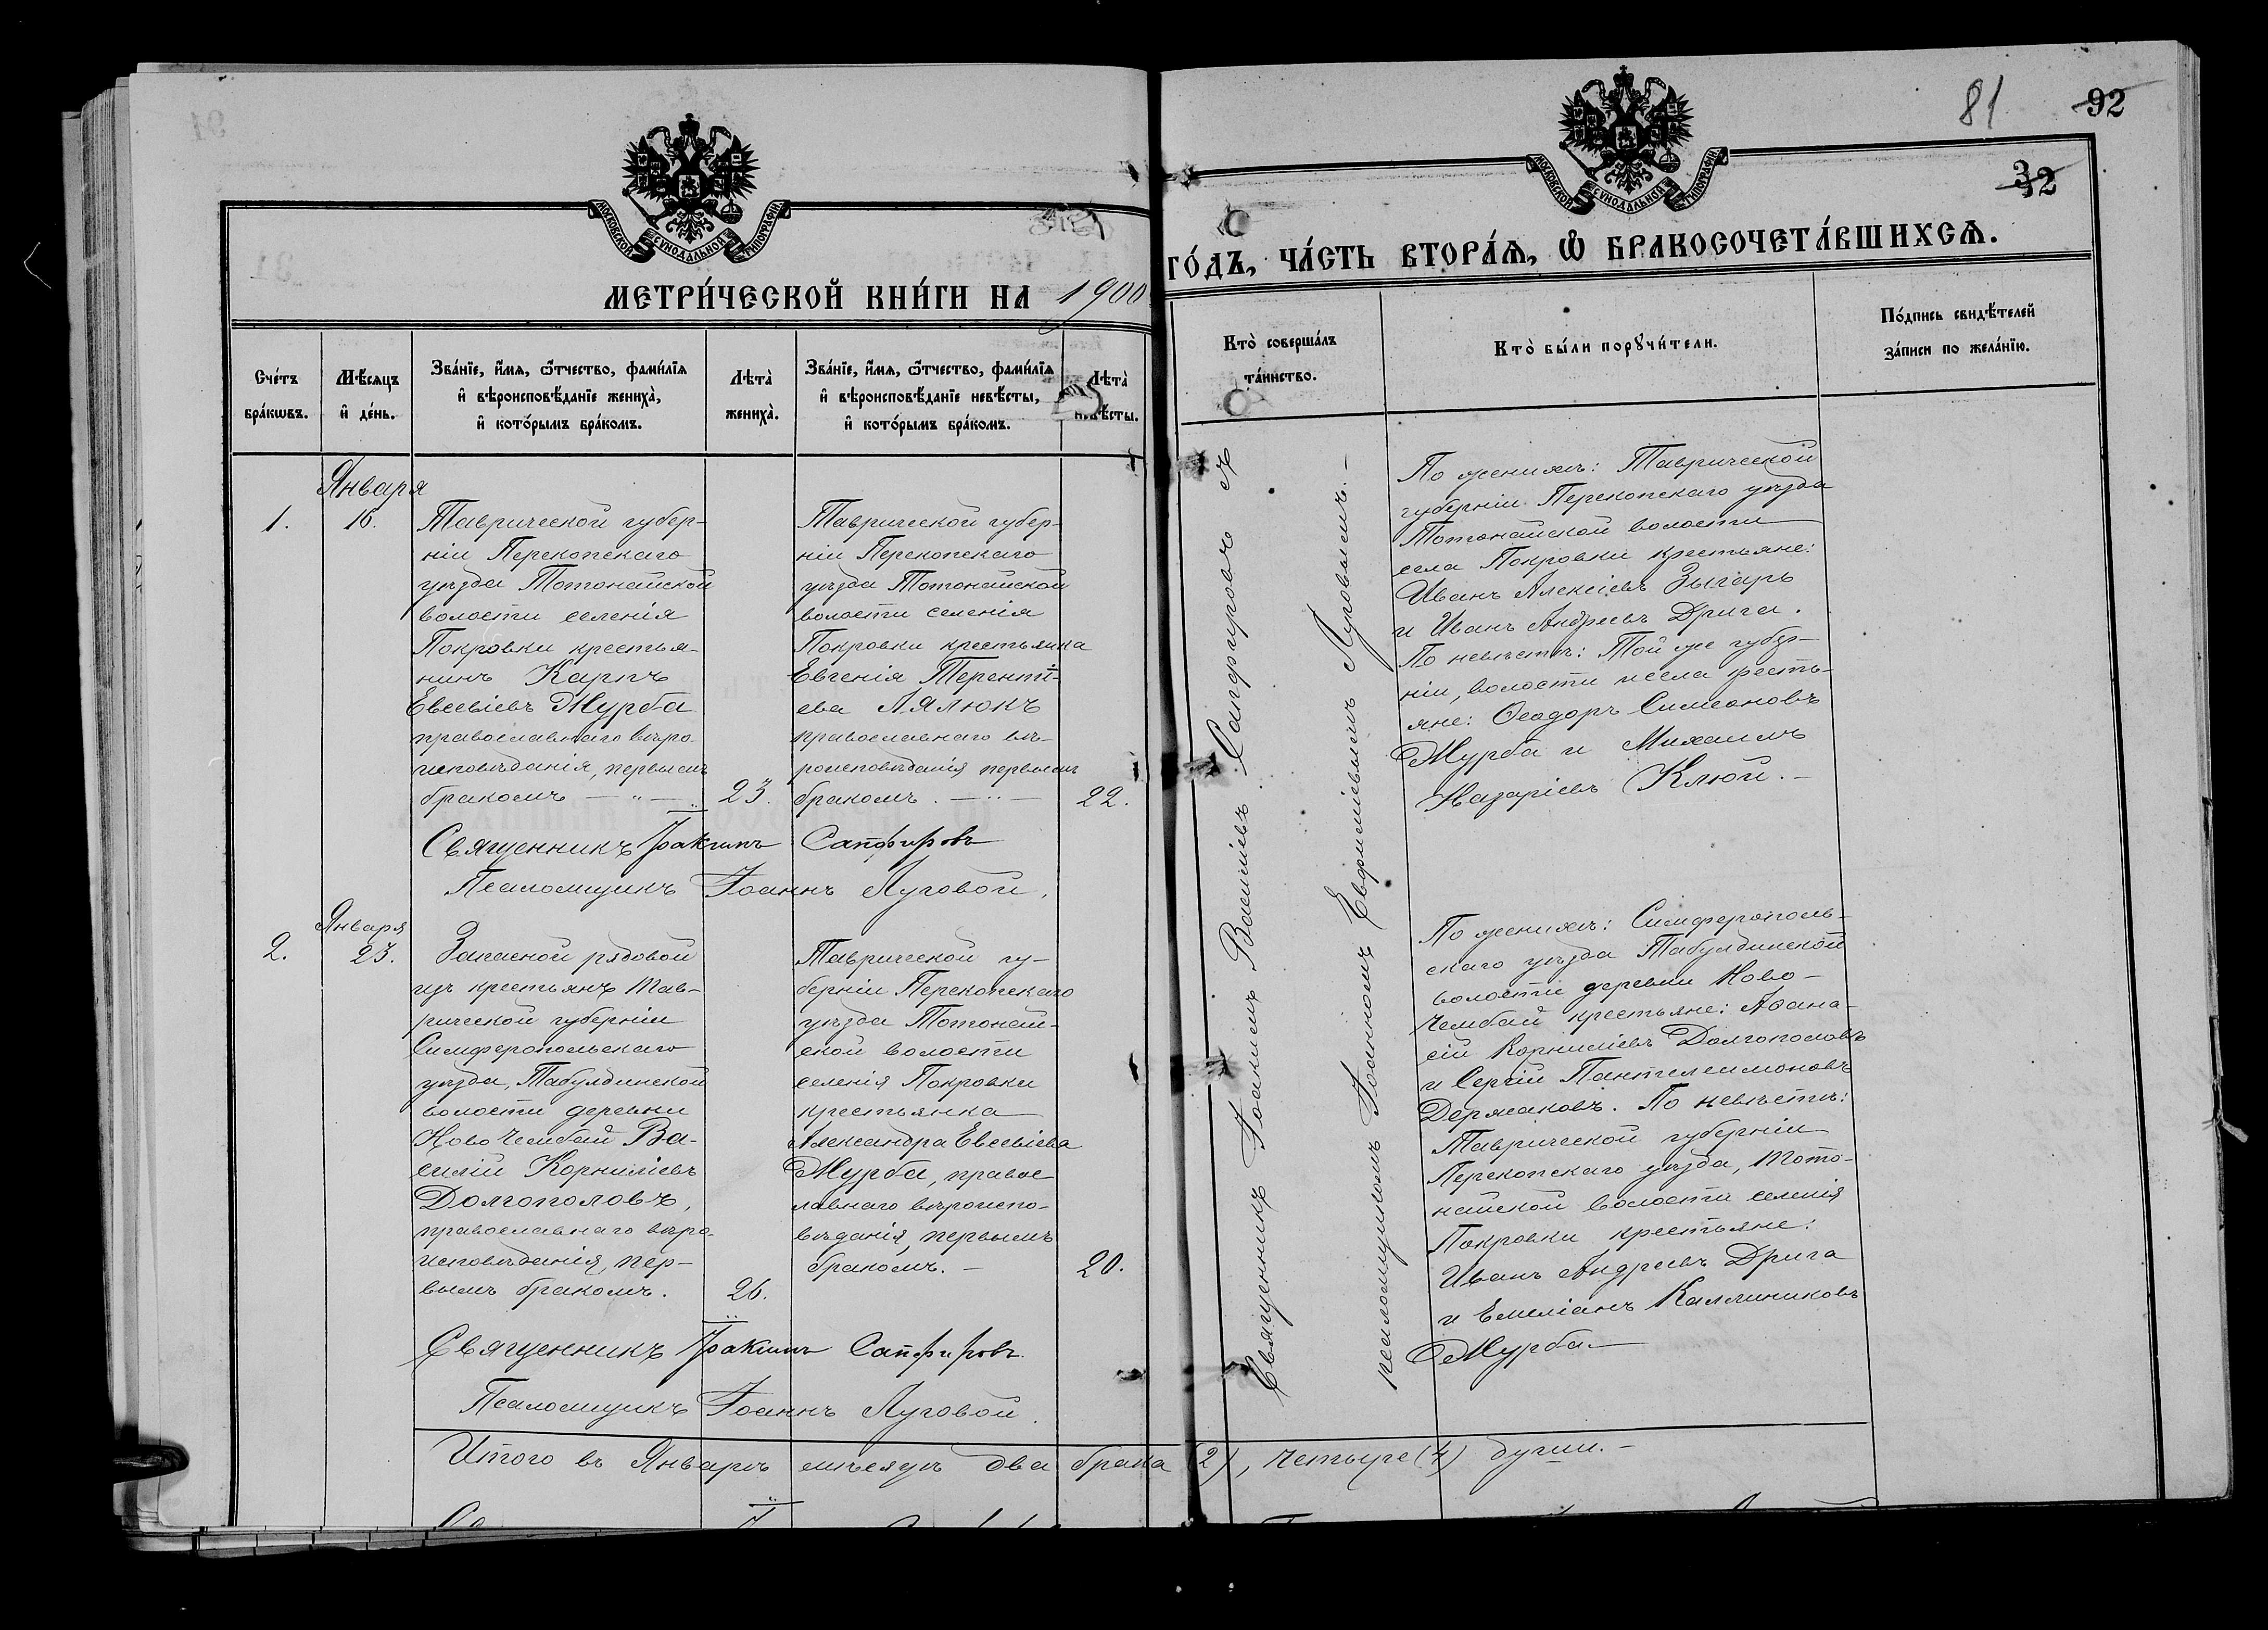 81
92
32
МОСКОВСКОЙ СѴНОДАЛЬНОЙ ТИПОГРАФІИ
МОСКОВСКОЙ СѴНОДАЛЬНОЙ ТИПОГРАФІИ
МЕТРИ́ЧЕСКОЙ КНИ́ГИ НА 1900
ГО́ДЪ, ЧА́СТЬ ВТОРА́Ѧ, Ѿ БРАКОСОЧЕТА́ВШИХСѦ.
Сче́тъ
бра́кѡвъ.
Мѣ́сяцъ
и҆ де́нь.
Зва́нїе, и҆́мя, ѻ҆́тчество, фами́лїя
и҆ вѣроисповѣ́данїе жениха̀,
и҆ кото́рымъ бра́комъ.
Лѣта̀
жениха̀.
Зва́нїе, и҆́мя, ѻ҆́тчество, фами́лїя
и҆ вѣроисповѣ́данїе невѣ́сты,
и҆ кото́рымъ бра́комъ.
Лѣта̀
невѣ́сты.
Кто̀ соверша́лъ
та́инство.
Кто̀ бы́ли порꙋчи́тели.
По́дпись свидѣ́телей
за́писи по жела́нїю.
1.
Января
16.
Таврической губер-
ніи Перекопскаго
уѣзда Тотонайской
волости селенія
Покровки крестья-
нинъ Карпъ
Евсевіевъ Мурба
православнаго вѣро-
исповѣданія, первымъ
бракомъ — " —
23.
Таврической губер-
ніи Перекопскаго
уѣзда Тотонайской
волости селенія
Покровки крестьянка
Евгенія Терентi-
ева Лялюкъ
православнаго вѣ-
роисповѣданія первымъ
бракомъ. — " —
22.
Священникъ Іоакимъ Сапфировъ
Псаломщикъ Іоаннъ Луговой.
Священникъ Іоакимъ Василіевъ Сапфировъ съ
псаломщикомъ Іоанномъ Евфиміевымъ Луговымъ. —
По женихѣ: Таврической
губерніи Перекопскаго уѣзда
Тотонайской волости
села Покровки крестьяне:
Иванъ Алексіевъ Зыгарь
и Иванъ Андреевъ Дрига.
По невѣстѣ: Той же губер-
ніи, волости и села кресть-
яне: Ѳеодоръ Симеоновъ
Мурба и Михаилъ
Назаріевъ Клюй. —
2.
Января
23.
Запасной рядовой
изъ крестьянъ Тав-
рической губерніи
Симферопольскаго
уѣзда, Табулдинской
волости деревни
Ново Чембай Ва-
силій Корниліевъ
Долгополовъ,
православнаго вѣро-
исповѣданія, пер-
вымъ бракомъ.
26.
Таврической гу-
берніи Перекопскаго
уѣзда Тотонай-
ской волости
селенія Покровки
крестьянка
Александра Евсевіева
Мурба, правос-
лавнаго вѣроиспо-
вѣданія, первымъ
бракомъ. —
20.
Священникъ Іоакимъ Сапфировъ.
Псаломщикъ Іоаннъ Луговой.
По женихѣ: Симферополь-
скаго уѣзда Табулдинской
волости деревни Ново-
Чембай крестьяне: Аѳана-
сій Корниліевъ Долгополовъ
и Сергій Пантелеимоновъ
Держаковъ. По невѣстѣ:
Таврической губерніи
Перекопскаго уѣзда, Тото-
найской волости селенія
Покровки крестьяне:
Иванъ Андреевъ Дрига
и Емеліанъ Каллиниковъ
Мурба —
Итого въ Январѣ мѣсяцѣ два брака (2), четыре (4) души. —